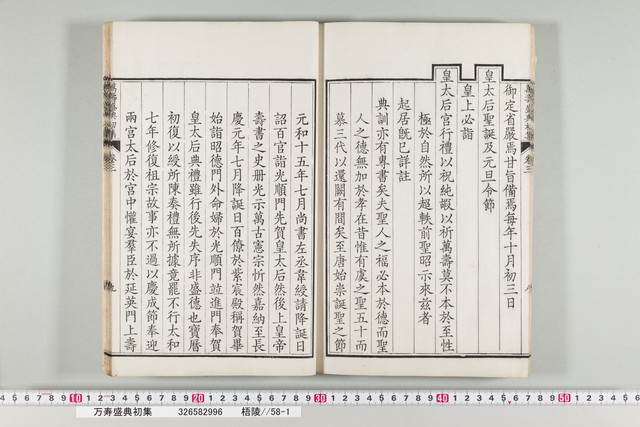 御定省嚴焉甘旨備焉每年十月初三日
皇太后聖誕及元旦令節
皇上必詣
皇太后宮行禮以祝純嘏以祈萬壽莫不本於至性
極於自然所以超軼前聖昭示來茲者
起居旣已詳註
典訓亦有專書矣夫聖人之福必本於德而聖
人之德無加於孝在昔惟有虞之聖五十而
慕三代以還闕有聞矣至唐始崇誕聖之節
元和十五年七月尚書左丞韋綬請降誕日
詔百官詣光順門先賀皇太后然後上皇帝
壽書之史册光示萬古憲宗忻然嘉納至長
慶元年七月降誕日百僚於紫宸殿稱賀畢
始詣昭德門外命婦於光順門竝進門奉賀
皇太后典禮雖行後先失序非盛德也寶曆
初復以綬所陳奏禮無所據竟罷不行太和
七年修復祖宗故事亦不過以慶成節奉迎
兩宮太后於宮中懽宴羣臣於延英門上壽
萬壽盛典初集
卷三
10 20 30 40 50
万寿盛典初集 326582996 梧陵//58-1